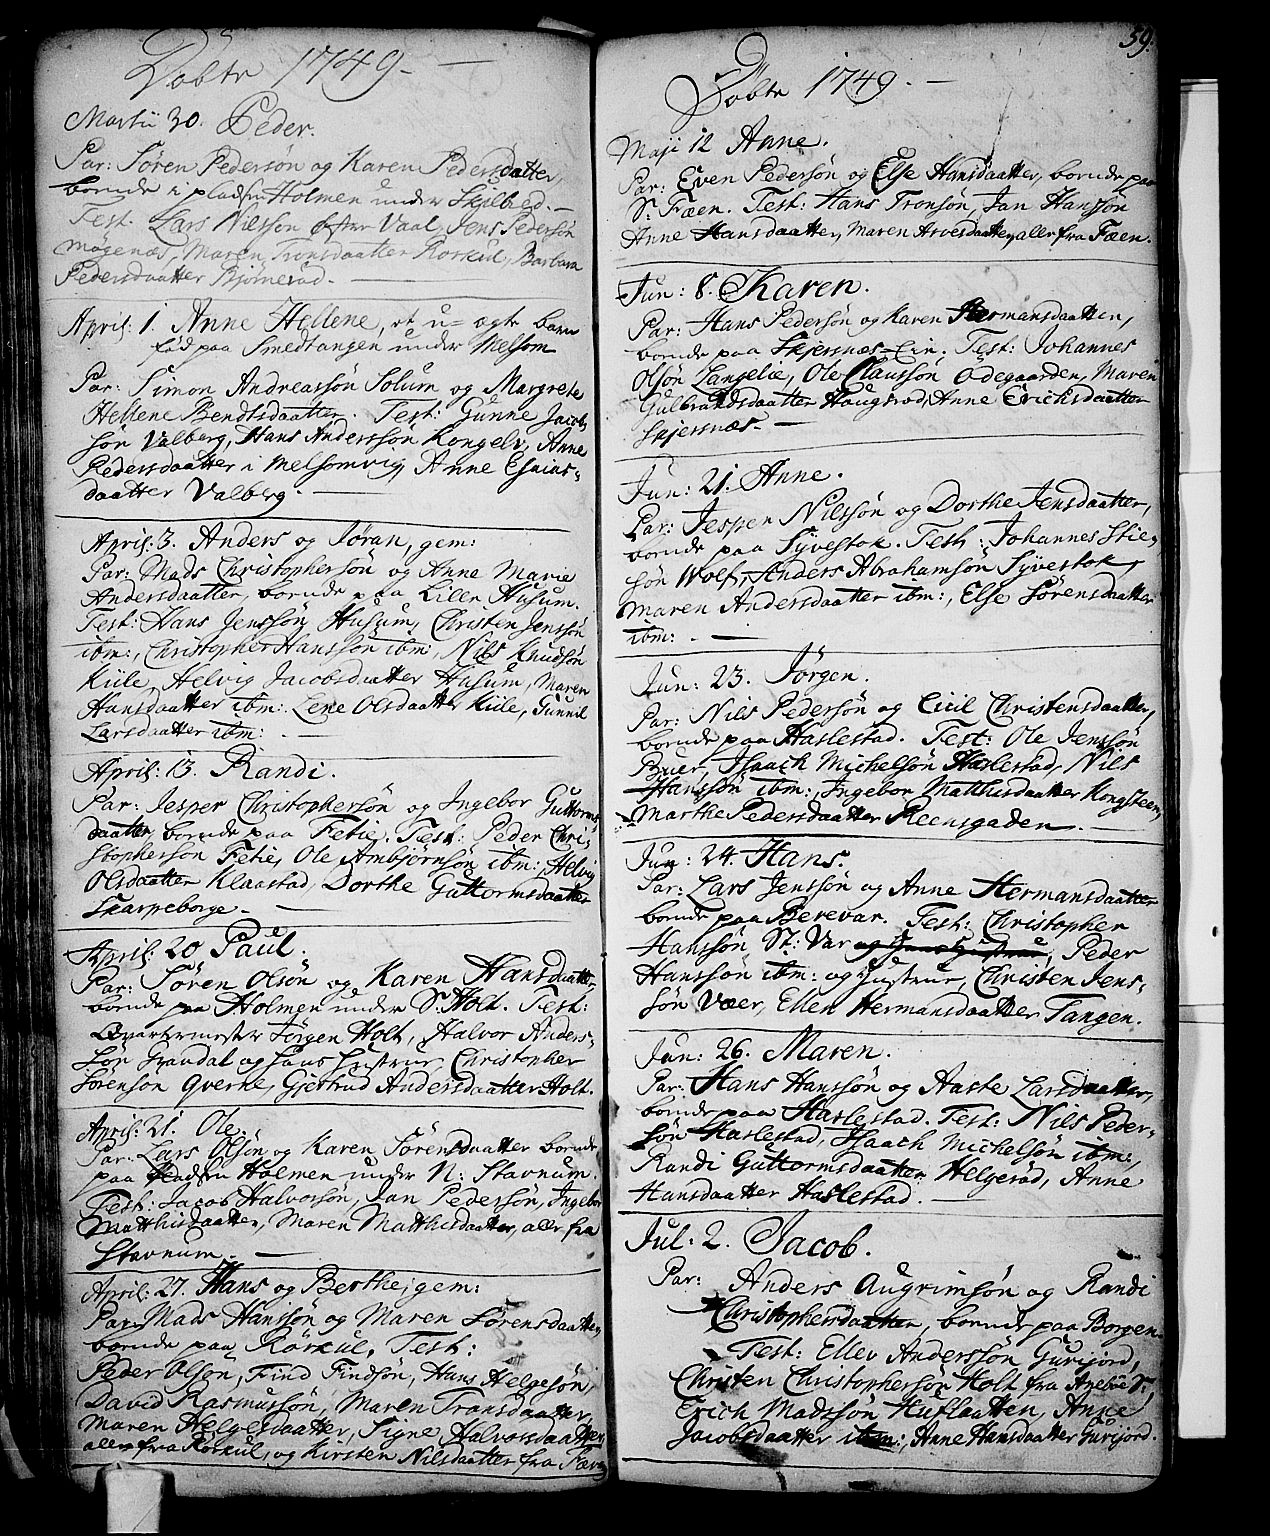 Døbte 1749. —
Martii 30. Peder.
Par: Søren Pedersøn og Karen Pedersdatter,
boende i pladsen Holmen under Skilbred. —
Test: Lars Nilssøn Øster Vaal, Jens Pedersøn
Magenæs, Maren Tronsdaatter Rørkul, Barbara
Pedersdaatter Bjørnerød. —
April: 1. Anne Hellene, et u=ægte barn
fød paa Smedtangen under Melsom
Par: Simon Andreassøn Solum og Margrete
Hellene Bendtsdaatter. Test: Gunne Jacob-
søn Valberg, Hans Anderssøn Kongelv, Anne
Pedersdaatter i Melsomvig, Anne Esaias-
daatter Valberg. —
April: 3. Anders og Jøran, gem:
Par: Mads Christophersøn og Anne Marie
Andersdaatter, boende paa Lille Husum.
Test: Hans Jenssøn Husum, Christen Jenssøn
ibm:, Christopher Hanssøn ibm:, Nils Knudsøn
Kiile, Helvig Jacobsdaatter Husum, Maren
Hansdaatter ibm: Lene Olsdaatter Kiile, Gunnil
Larsdaatter ibm: —
April: 13. Randi.
Par: Jesper Christophersøn og Ingebor Guttorms
daatter, boende paa Fetie. Test: Peder Chri-
stophersøn Fetie, Ole Ambjørnsøn ibm:, Helvig
Olsdaatter Klaastad, Dorthe Guttormsdaatter
Skarpeborge —
April: 20 Paul.
Par: Søren Olsøn og Karen Hansdaatter,
boende paa Holmen under S: Holt. Test:
Qvartermester Jørgen Holt, Halvor Anders-
søn Grandal og hans hustrue, Christopher
Sørensøn Qverne, Gjertrud Andersdaatter Holt.
April: 21. Ole.
Par: Lars Olsøn og Karen Sørensdaatter boende
paa pladsen Holmen under N: Stavnum.
Test: Jacob Halvorsøn, Jan Pedersøn, Ingebor
Matthisdaatter, Maren Matthisdaatter, alle fra
Stavnum. —
April: 27. Hans og Berthe, gem:
Par: Mads Hanssøn og Maren Sørensdaatter,
boende paa Rørkul, Test:
Peder Olsøn, Find Findsøn, Hans Helgesøn,
David Rasmussøn, Maren Tronsdaatter,
Maren Helgesdaatter, Signe Halvorsdaatter
alle fra Rørkul, og Kirsten Nilsdaatter fra
59.
Døbte 1749. —
Maji 12 Anne.
Par: Even Pedersøn og Else Hansdaatter, boende paa
S: Fæen. Test: Hans Tronsøn, Jan Hanssøn
Anne Hansdaatter, Maren Arvesdaatter, alle fra Fæen.
Jun: 8. Karen.
Par: Hans Pedersøn og Karen Hermansdaatter,
boende paa Skjersnæs-Eie. Test: Johannes
Olsøn Langelie, Ole Claussøn Ødegaarden, Maren
Gulbrandsdaatter Haugerød, Anne Erichsdaatter
Skjersnæs. —
Jun: 21. Anne.
Par: Jesper Nilssøn og Dorthe Jensdaatter,
boende paa Syvestok. Test: Johannes Stie-
søn Wolf, Anders Abrahamsøn Syvestok,
Maren Andersdaatter ibm:, Else Sørensdaatter
ibm: —
Jun: 23. Jørgen.
Par: Nils Pedersøn og Cicil Christensdaatter,
boende paa Haslestad. Test: Ole Jenssøn
Buer, Isaach Michelsøn Haslestad, Nils
Hanssøn ibm:, Ingebor Matthisdaatter Kongsteen,
Marthe Pedersdaatter Reensgaden. —
Jun: 24. Hans.
Par: Lars Jenssøn og Anne Hermansdaatter
boende paa Berevar. Test: Christopher
Hanssøn St: Var og hans hustrue, Peder
Hanssøn ibm: og hustrue, Christen Jens-
søn Væer, Ellen Hermansdaatter Tangen.
Jun: 26. Maren.
Par: Hans Hanssøn og Aaste Larsdaatter,
boende paa Haslestad. Test: Nils Peder-
søn Haslestad, Isaach Michelsøn ibm:,
Randi Guttormsdaatter Helgerød, Anne
Hansdaatter Haslestad. —
Jul: 2. Jacob.
Par: Anders Augrimsøn og Randi
Christophersdaatter, boende paa Borgen.
Test: Ellev Anderssøn Gurijord,
Christen Christophersøn Holt fra
Erich Madssøn Huflaatten, Anne
Jacobsdaatter ibm:, Anne Hansdaatter Gurijord.